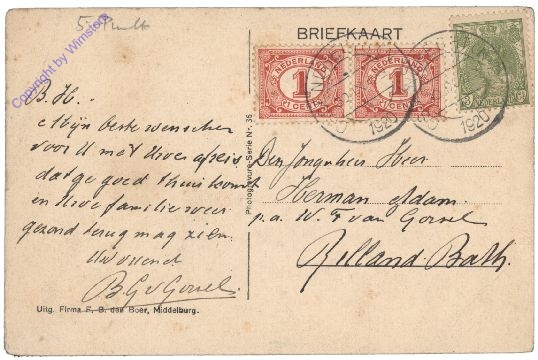 Copyright by Wimstore
BRIEFKAART
NEDERLAND
1
CENT
NEDERLAND
1
CENT
1920
1920
B. H.
Mijn beste wenschen
voor U met Uwe afreis
dat ge goed thuis komt
en Uwe familie weer
gezond terug mag zien.
Uw vriend
B. G. v Gorsel.
Den Jongeheer Heer
Herman Adam.
p.a. W. F van Gorsel
Rilland Bath.
Photogravure-Serie No. 36
Uitg. Firma F. B. den Boer, Middelburg.